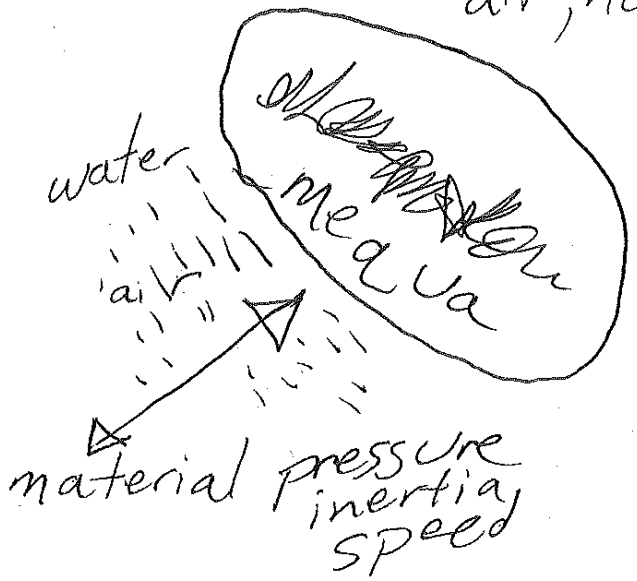 air,
water
mequa
air
material pressure
inertia,
speed